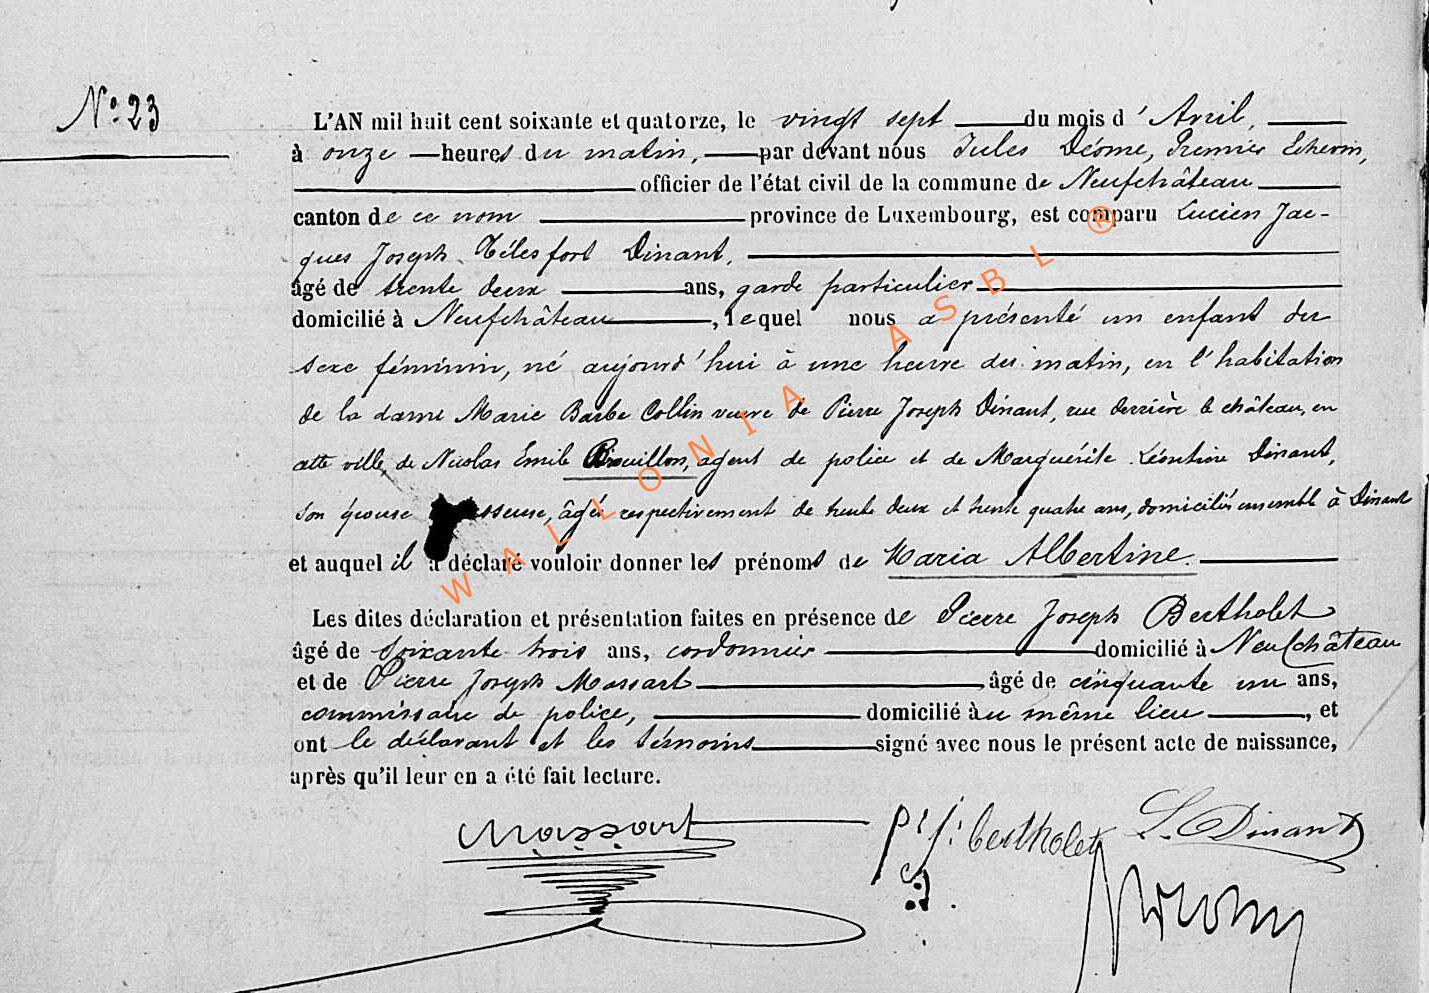 N.º 23
L'AN mil huit cent soixante et quatorze, le vingt sept du mois d'Avril,
à onze heures du matin, par devant nous Jules Déome, Premier Echevin,
officier de l'état civil de la commune de Neufchâteau
canton de ce nom province de Luxembourg, est comparu Lucien Jac-
ques Joseph Télesfort Dinant,
âgé de trente deux ans, garde particulier
domicilié à Neufchâteau, lequel nous a présenté un enfant du
sexe féminin, né aujourd'hui à une heure du matin, en l'habitation
de la dame Marie Barbe Collin veuve de Pierre Joseph Dinant, rue derrière le château, en
cette ville, de Nicolas Emile Brouillon, agent de police et de Marguérite Léontine Dinant,
son épouse âgés respectivement de trente deux et trente quatre ans, domiciliés ensemble à Dinant
et auquel il a déclaré vouloir donner les prénoms de Maria Albertine.
Les dites déclaration et présentation faites en présence de Pierre Joseph Bertholet
âgé de soixante trois ans, cordonnier domicilié à Neufchâteau
et de Pierre Joseph Massart, âgé de cinquante un ans,
commissaire de police, domicilié au même lieu, et
ont le déclarant et les témoins signé avec nous le présent acte de naissance,
après qu'il leur en a été fait lecture.
Massart
p. j. bertholet
L. Dinant
WALLONIA ASBL ®